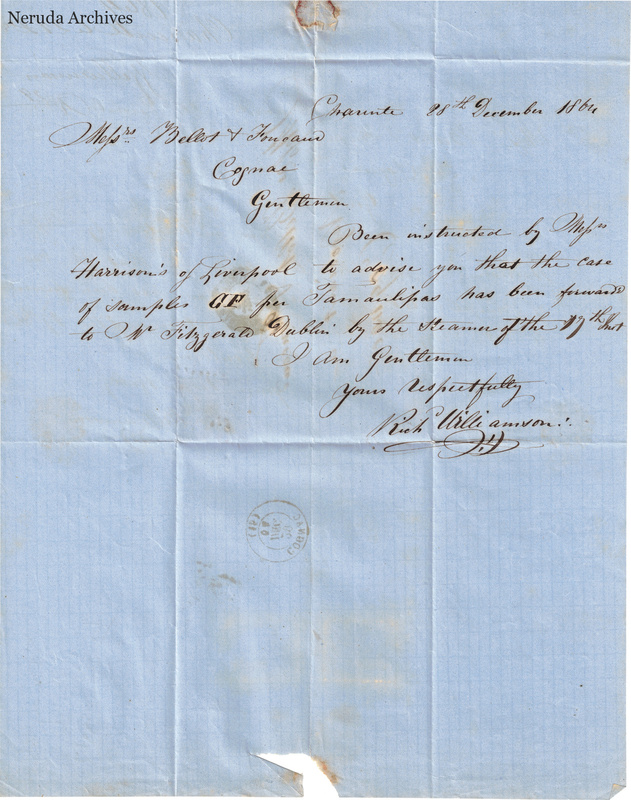 Neruda Archives
Charente 28th December 1864
Messrs Bellot & Foucaud
Cognac
Gentlemen
Been instructed by Messrs
Harrison's of Liverpool to advise you that the case
of samples per Tamaulipas has been forward
to Mr Fitzgerald Dublin by the Steamer of the 17th
I am Gentlemen
Yours respectfully
Richd Williamson